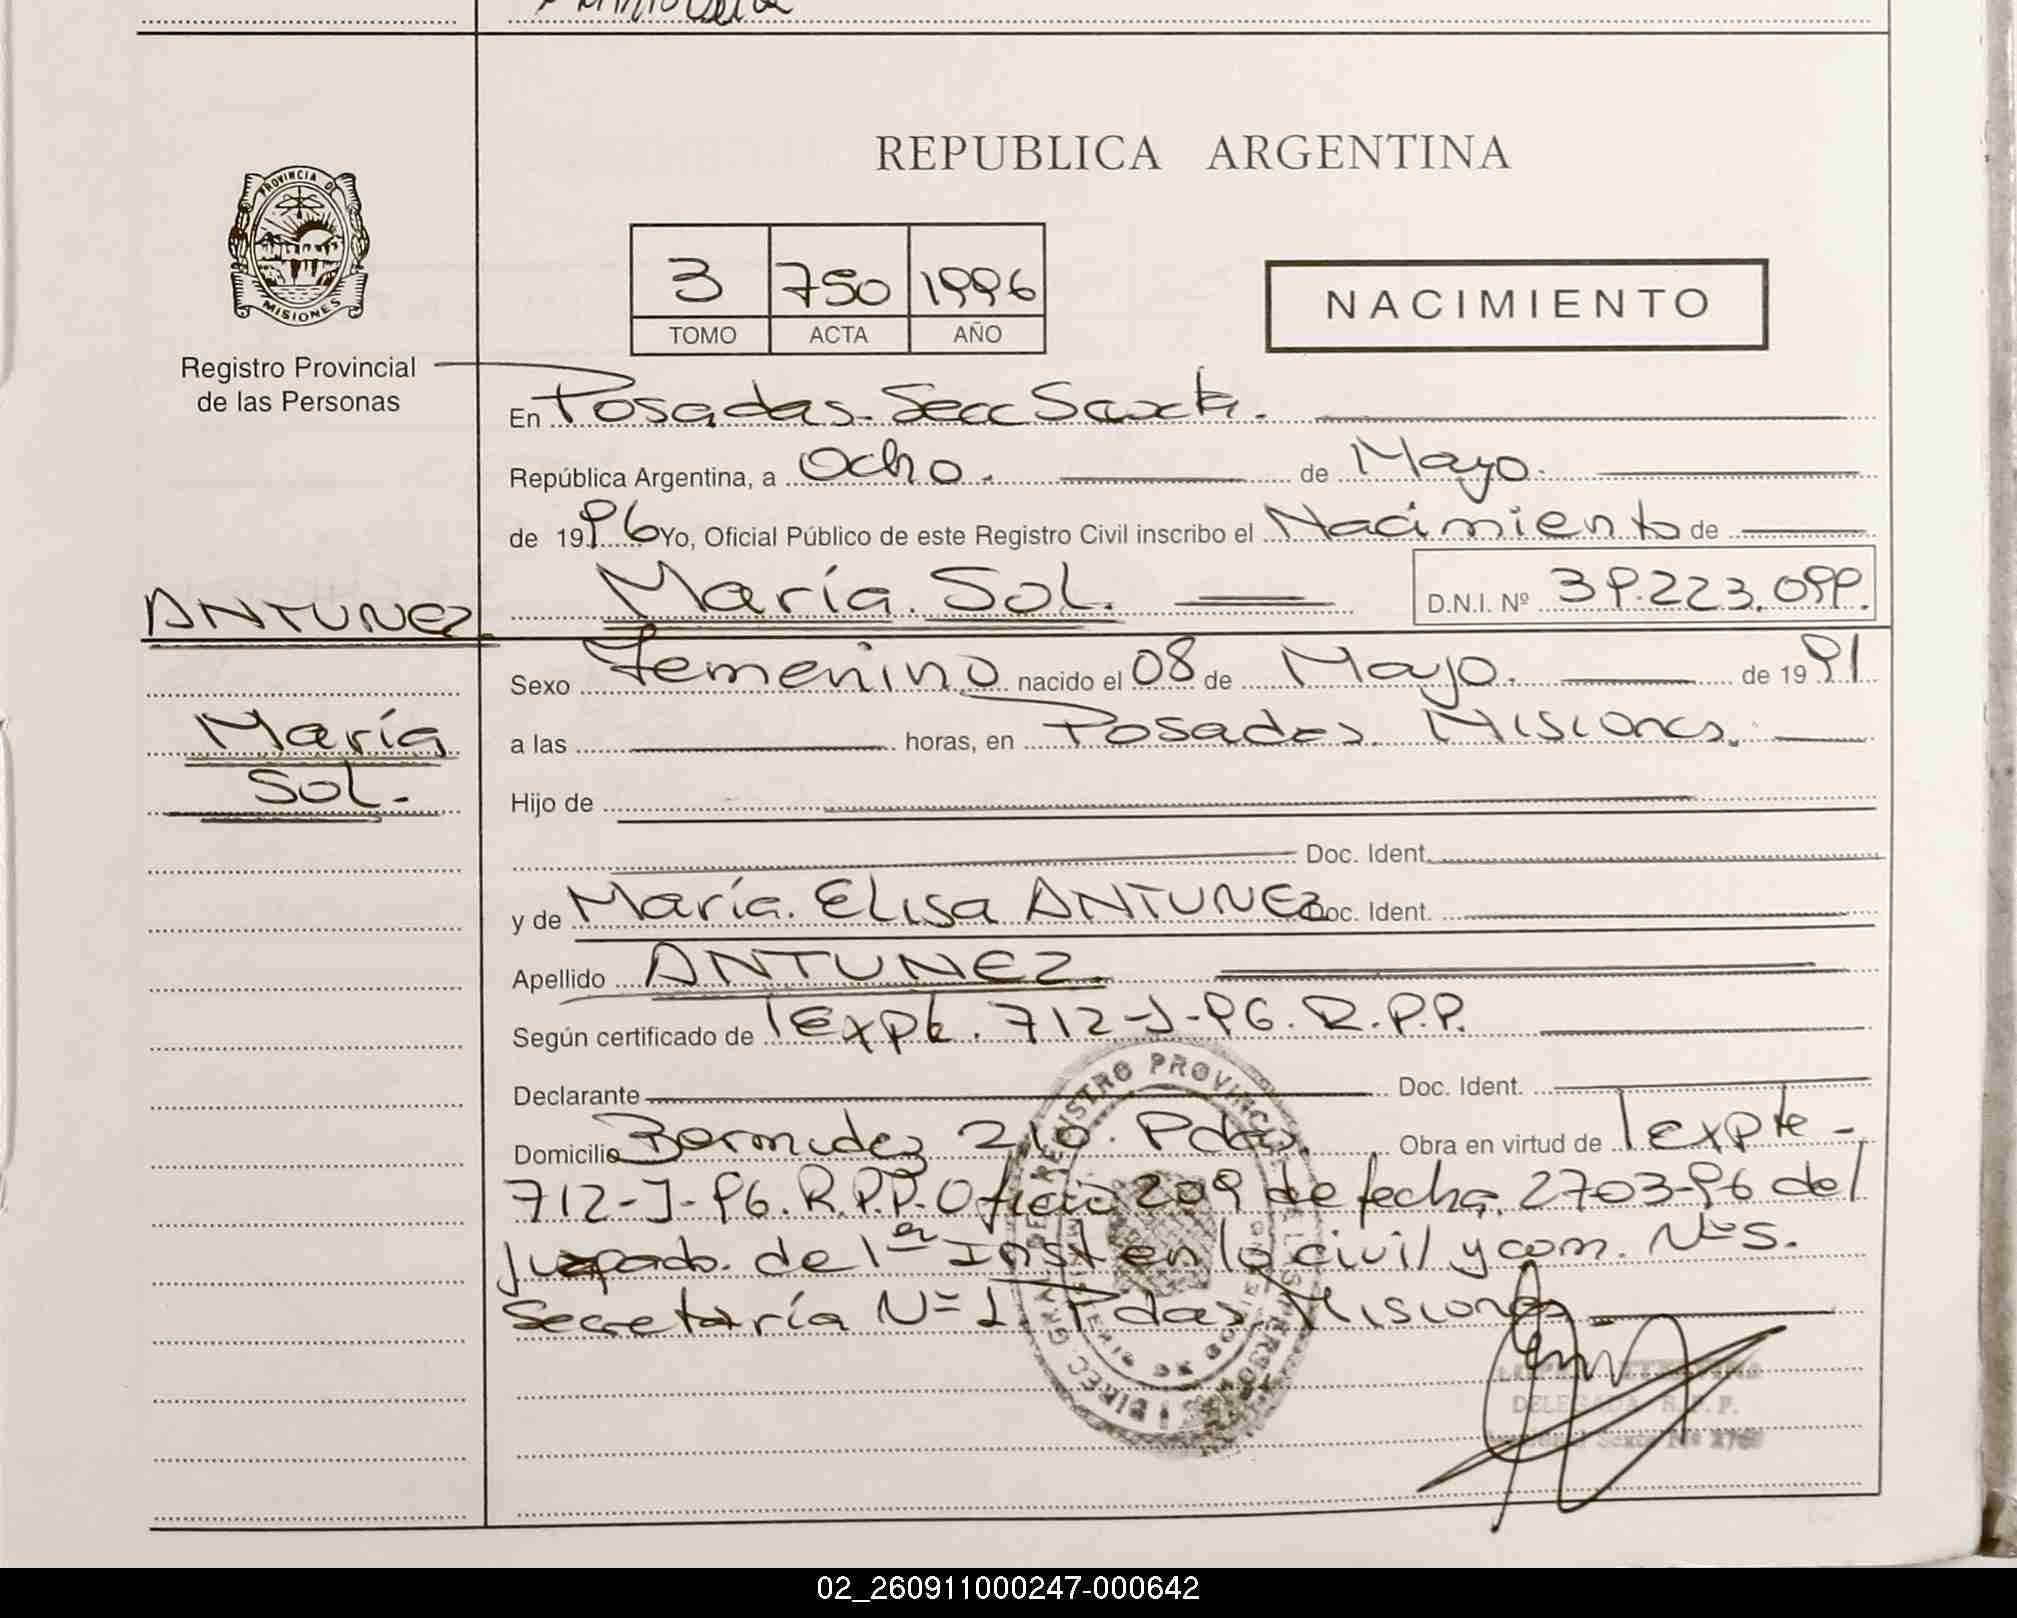 REPUBLICA ARGENTINA
PROVINCIA DE
MISIONES
Registro Provincial
de las Personas
3 750 1996
TOMO ACTA AÑO
NACIMIENTO
En Posadas. Secc Sexta.
República Argentina, a Ocho. de Mayo.
de 1996 Yo, Oficial Público de este Registro Civil inscribo el Nacimiento de
ANTUNEZ
María Sol.
María. Sol. D.N.I. Nº 39.223.099.
Sexo Femenino nacido el 08 de Mayo. de 1991
a las horas, en Posadas. Misiones.
Hijo de
Doc. Ident.
y de María. Elisa ANTUNEZ Doc. Ident.
Apellido ANTUNEZ.
Según certificado de Expt. 712-J-96. R.P.P.
Declarante Doc. Ident.
Domicilio Bermudez 210. Pdas. Obra en virtud de Expte-
712-J-96. R.P.P. Oficio 209 de fecha. 2703-96 del
Juzgado. de 1er Inst en lo civil y com. Nº 5.
Secretaría Nº 1. Pdas. Misiones.
DELEGADA R.P.P.
02_260911000247-000642